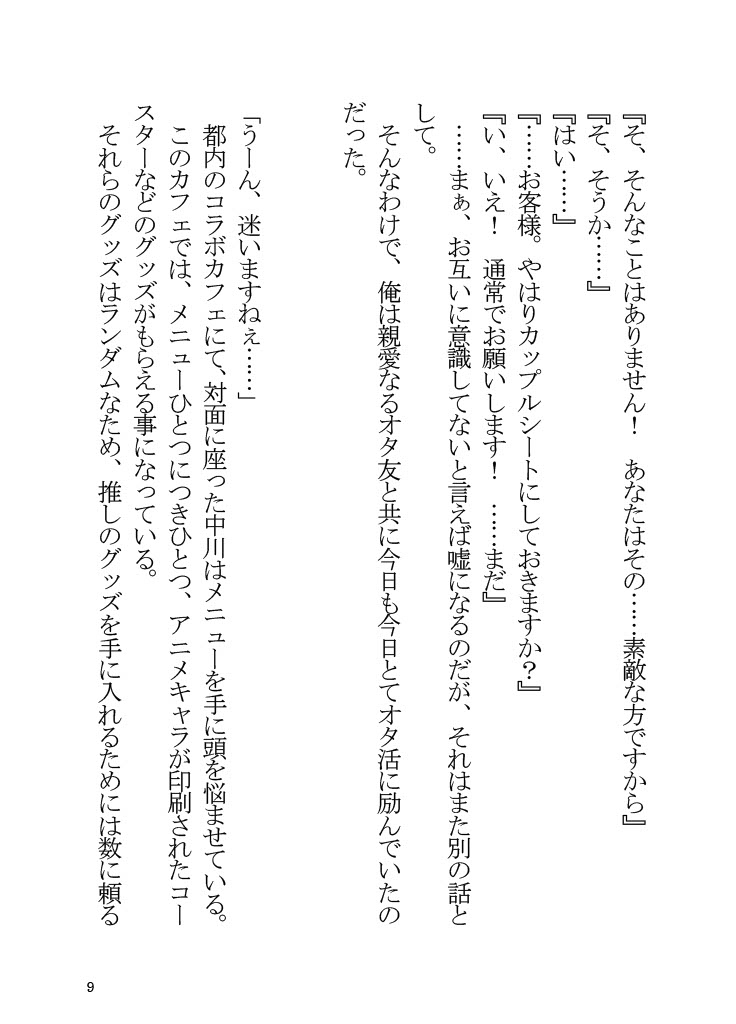 『そ、そんなことはありません！　あなたはその……素敵な方ですから』
『そ、そうか……』
『はい……』
『……お客様。やはりカップルシートにしておきますか？』
『い、いえ！　通常でお願いします！　……まだ』
　……まぁ、お互いに意識してないと言えば嘘になるのだが、それはまた別の話と
して。
　そんなわけで、俺は親愛なるオタ友と共に今日も今日とてオタ活に励んでいたの
だった。
「うーん、迷いますねぇ……」
　都内のコラボカフェにて、対面に座った中川はメニューを手に頭を悩ませている。
　このカフェでは、メニューひとつにつきひとつ、アニメキャラが印刷されたコー
スターなどのグッズがもらえる事になっている。
　それらのグッズはランダムなため、推しのグッズを手に入れるためには数に頼る
9